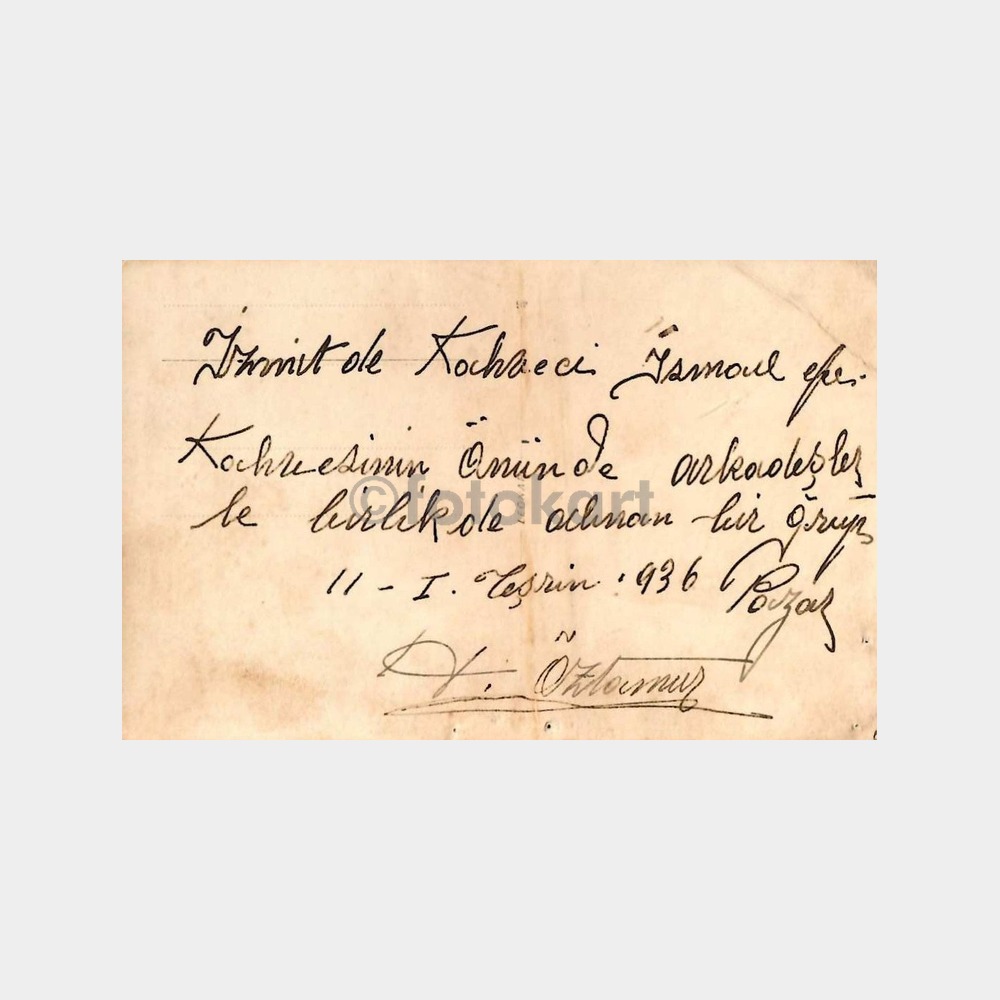 İzmit de Kahveci İsmail efe.
Kahvesinin Önünde arkadeşler
le birlikde alınan bir ğrup
©fotokart
11 - I. Teşrin. 936 Pazar
Öztamur